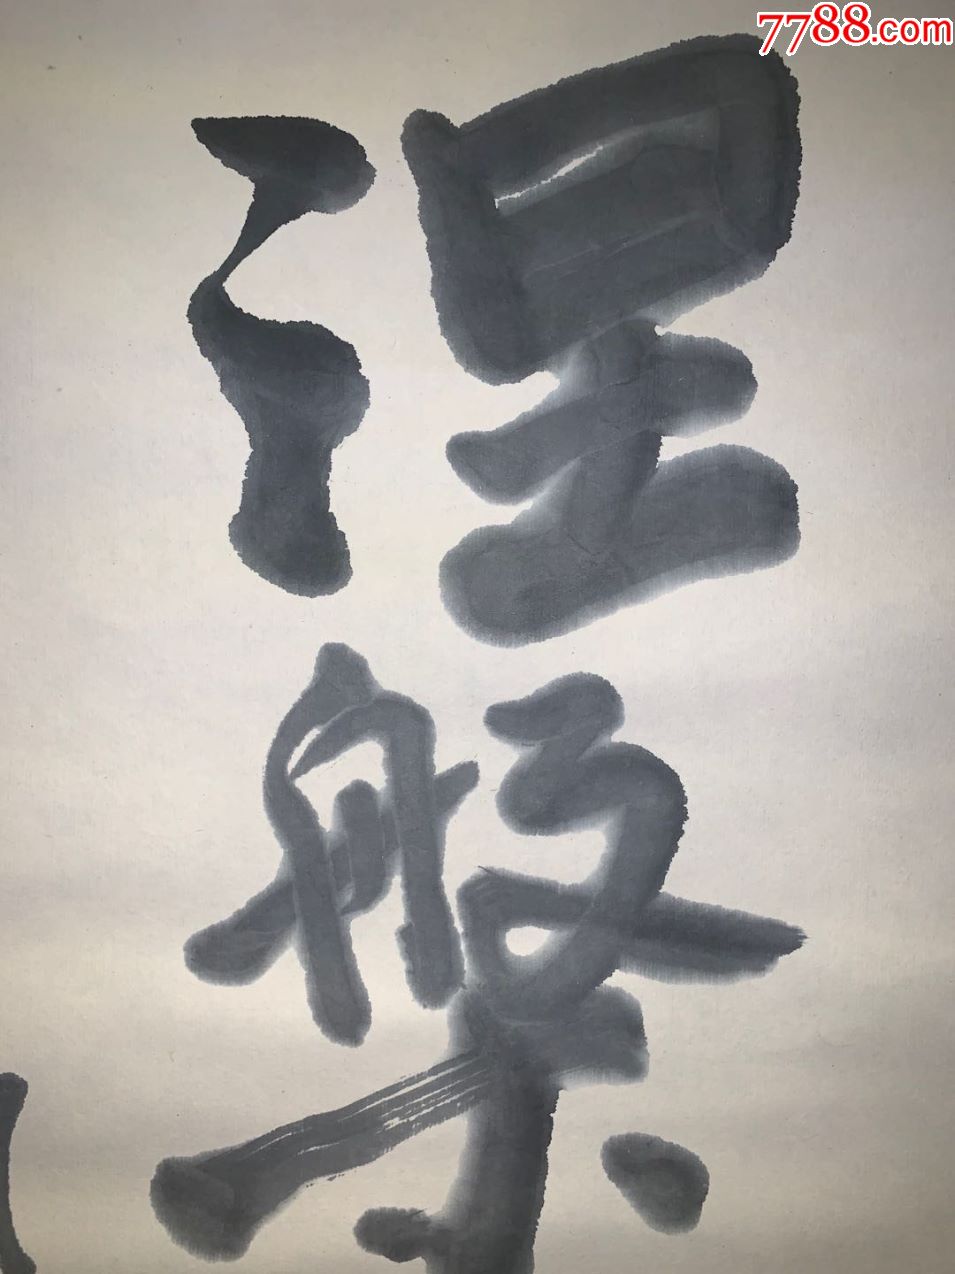 7788.com
涅槃